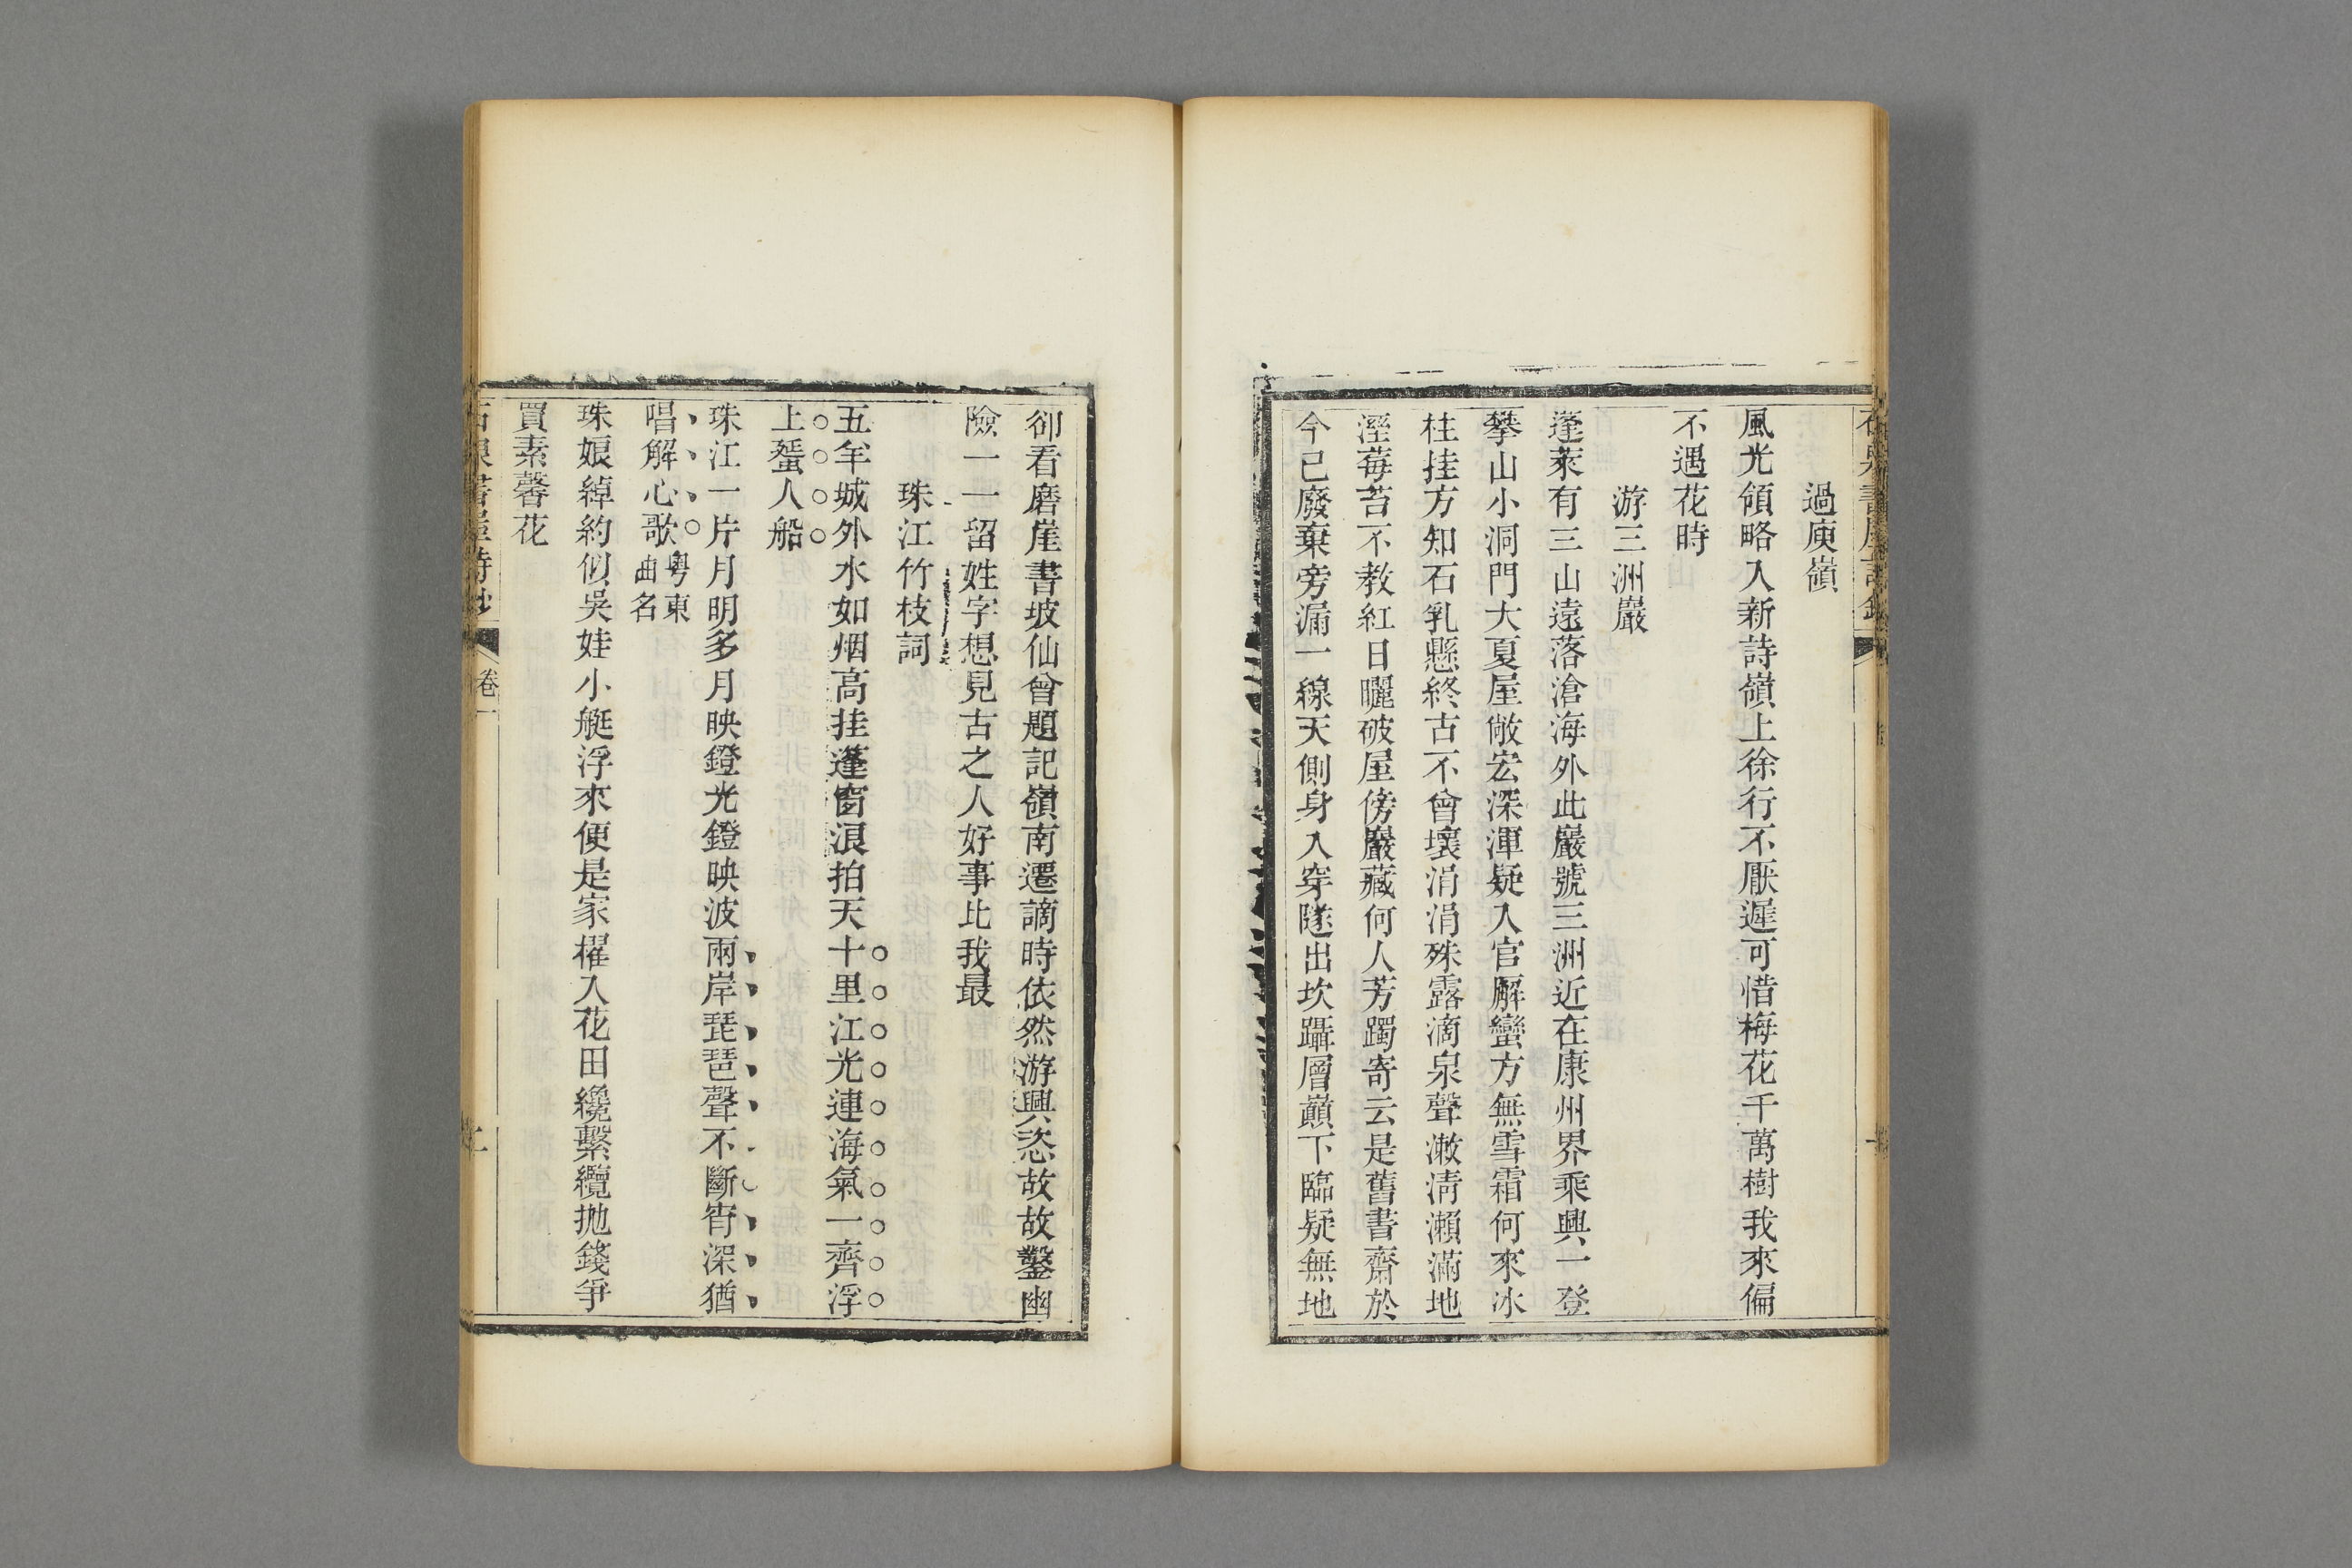 過庾嶺
風光領略入新詩嶺上徐行不厭遲可惜梅花千萬樹我來偏
不遇花時
游三洲巖
蓬萊有三山遠落滄海外此巖號三洲近在康州界乘興一登
攀山小洞門大夏屋敞宏深渾疑入官廨蠻方無雪霜何來冰
柱挂方知石乳懸終古不曾壞涓涓殊露滴泉聲漱清瀨滿地
溼莓苔不教紅日曬破屋傍巖藏何人芳躅寄云是舊書齋於
今已廢棄旁漏一線天側身入穿隧出坎躡層巔下臨疑無地
卻看磨崖書坡仙曾題記嶺南遷謫時依然游興恣故故鑿幽
險一一留姓字想見古之人好事比我最
珠江竹枝詞
五羊城外水如烟高挂蓬窗浪拍天十里江光連海氣一齊浮
上蜑人船
珠江一片月明多月映鐙光鐙映波兩岸琵琶聲不斷宵深猶
唱解心歌粵東曲名
珠娘綽約似吳娃小艇浮來便是家櫂入花田纔繫纜拋錢爭
買素馨花
書屋詩鈔 卷一